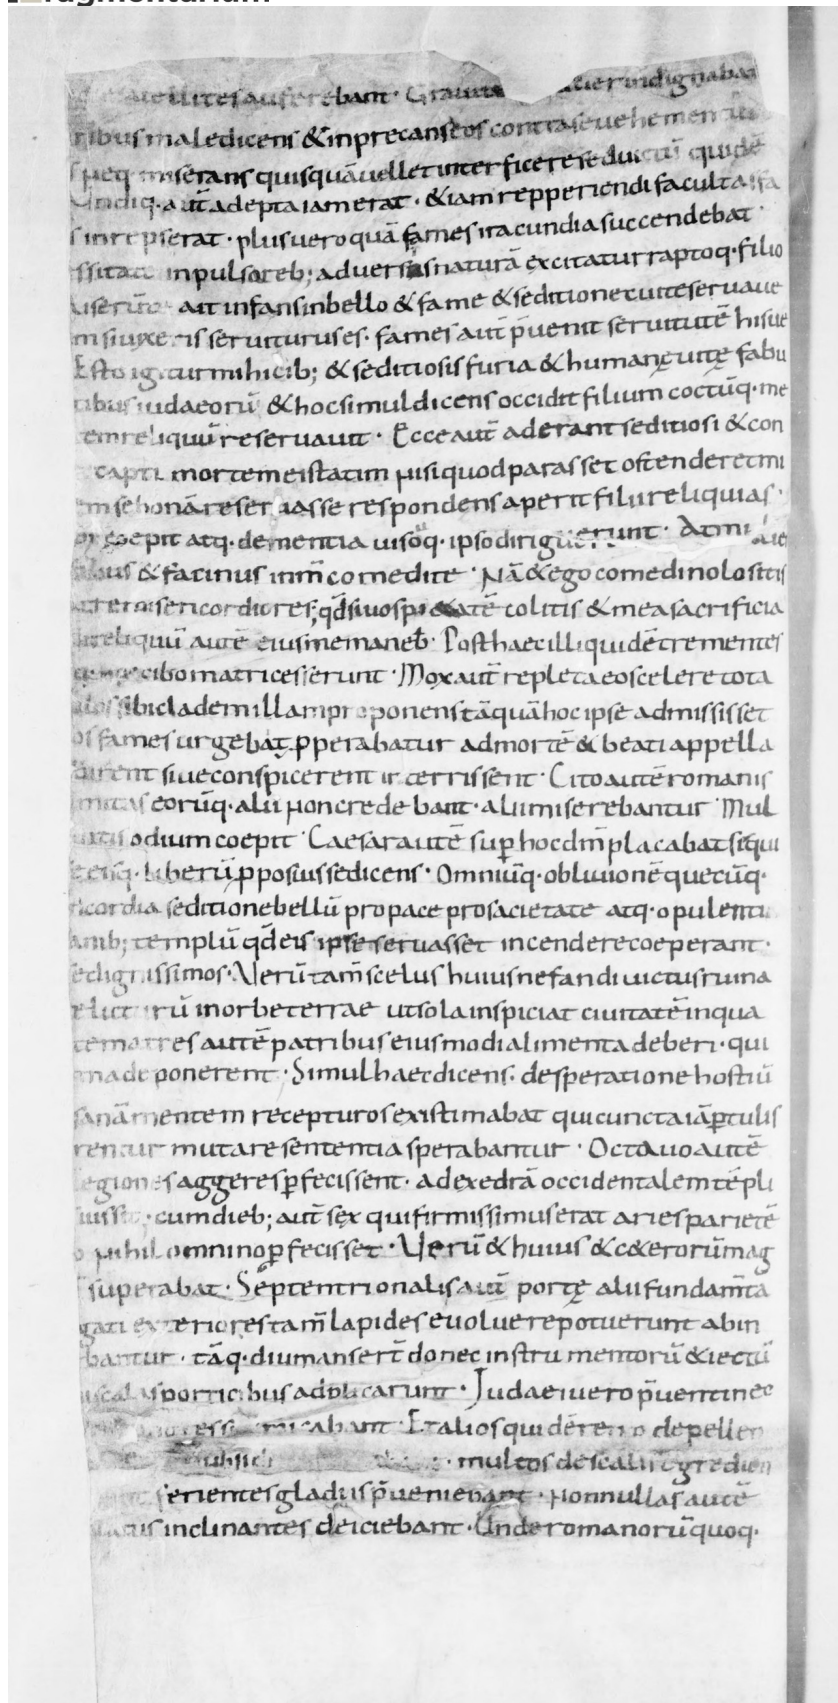 satellites auferebant· Grauite mulier indignabat
ribus maledicens & inprecans eos contra se uehementius
neq· miserans quisquā uellet interficere seductū quidē
Undiq· aūt adepta iam erat· & iam repperiendi facultas
s inrepserat· plus uero quā fames iracundia succendebat·
essitate inpulsoreb; aduersus naturā excitatur raptoq· filio
Miserū ait infans in bello & fame & seditione cui te seruaue
m si uixeris seruiturus es· fames aūt p̄uenit seruitutē hisue
Esto igitur mihi cib; & seditiosis furia & humanę uitę fabu
tibus iudaeorū & hoc simul dicens occidit filium coctūq· me
tem reliquū reseruauit· Ecce aūt aderant seditiosi & con
capti mortem ei statim nisi quod parasset ostenderet mi
em se bonā reseruasse respondens aperit filii reliquias·
coepit atq· dementia uisoq· ipso diriguerunt· At mi
& facinus inm̄ comedite· Nā & ego comedi nolo sitis
misericordiores; qđ si uos pi&atē colitis & mea sacrificia
reliquū autē eius me maneb̄· Post haec illi quidē trementes
cibo matri cesserunt· Mox aūt repleta eo scelere tota
sibi cladem illam proponens tāquā hoc ipse admississet
os fames urgebat ꝓperabatur ad mortē & beati appella
dirent siue conspicerent ir cerrissent· Cito autē romanis
mitas eorūq· alii non credebant· alii miserebantur· Mul
odium coepit· Caesar autē suꝑ hoc dm̄ placabat seq̄ui
eisq· liberū ꝓposuisse dicens· Omniūq· obliuionē quecūq·
ricordia seditione bellū pro pace pro sacietate atq· opulenti
manib; templū qđ eis ipse seruasset incendere coeperant·
se dignissimos· Uerū tam̄ scelus huius nefandi uictus ruina
relicturū in orbe terrae ut sol a inspiciat ciuitatē in qua
te matres autē patribus eiusmodi alimenta deberi· qui
ma deponerent· Simul haec dicens· desperatione hostiū
sanā mentem recepturos existimabat qui cuncta iā ꝑtulis
rentur mutare sententia sperabantur· Octauo autē
legiones aggeres ꝑfecissent· ad exedrā occidentalem tēpli
iussit· cum dieb; aūt sex qui firmissimus erat aries parietē
nihil omnino ꝑfecisset· Uerū & huius & c&erorū mag
superabat· Septentrionalis aūt portę alii fundam̄ta
gati exteriores tam̄ lapides euoluere potuerunt ab in
bantur· tāq· diu manser̄t donec instrumentorū & iectū
scalas porticibus adplicarunt· Judaei uero p̄uenti nec
micabant· Et alios quidē retro depellen
multos de scalis egredien
ferientes gladiis p̄ueniebant· Nonnullas autē
inclinantes deiciebant· Unde romanorū quoq·